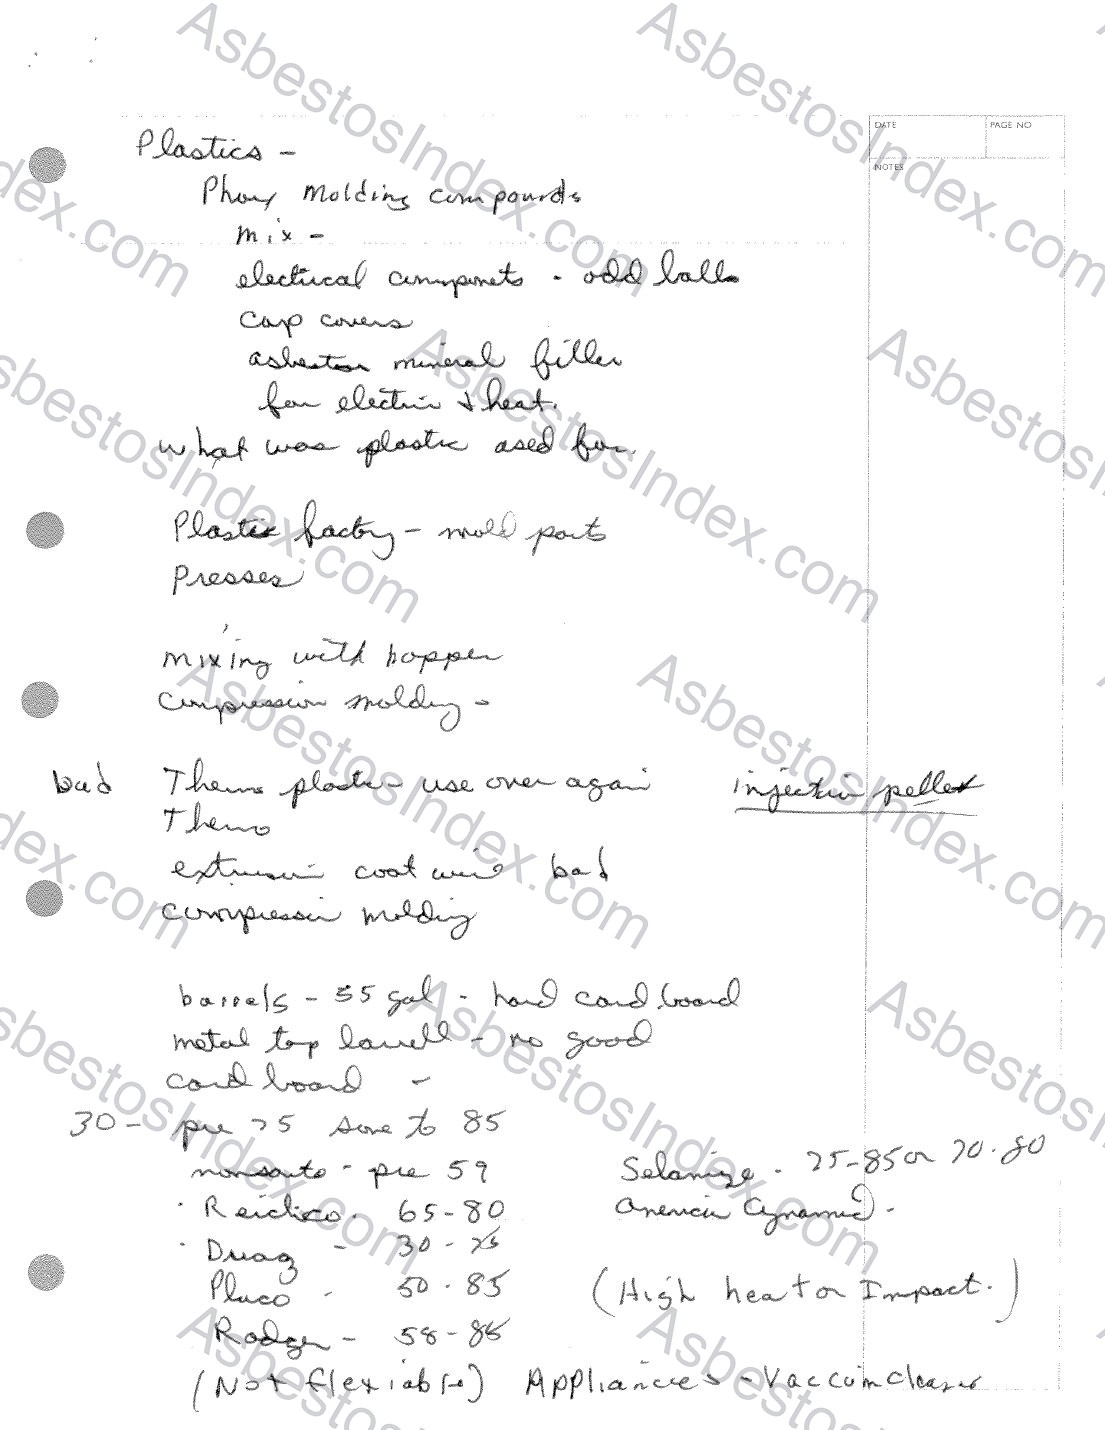 DATE
PAGE NO
NOTES
Plastics -
Molding compounds
mix -
electrical componets - odd balls
cap covers
asbestos mineral filler
for electric & heat.
what was plastic ased for.
Plastic factory - mold parts
Presses
mixing with hopper
compression molding -
bad Thermo plastic - use over again injection pellet
Thermo
extrusion coat wire bad
compression molding
barrels - 55 gal - hard card board
metal top - no good
card board -
30 - pre 75 some to 85
monsanto - pre 59
Selanize - 75-85 or 70-80
65-80
American Cynamid -
30 - 75
Pluco - 50 - 85
(High heat or Impact.)
Rodger - 58-86
(Not flexiable) Appliances - Vaccum Cleaner
AsbestosIndex.com